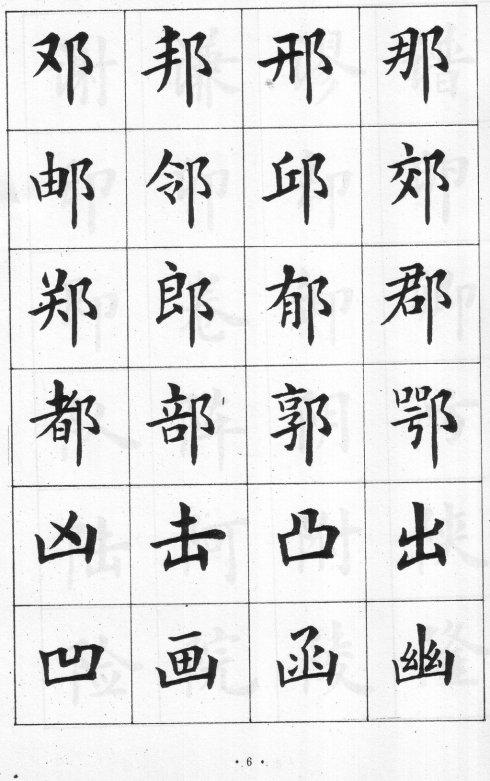 邓邦邢那
邮邻邱郊
郑郎郁郡
都部郭鄂
凶击凸出
凹画函幽
·6·